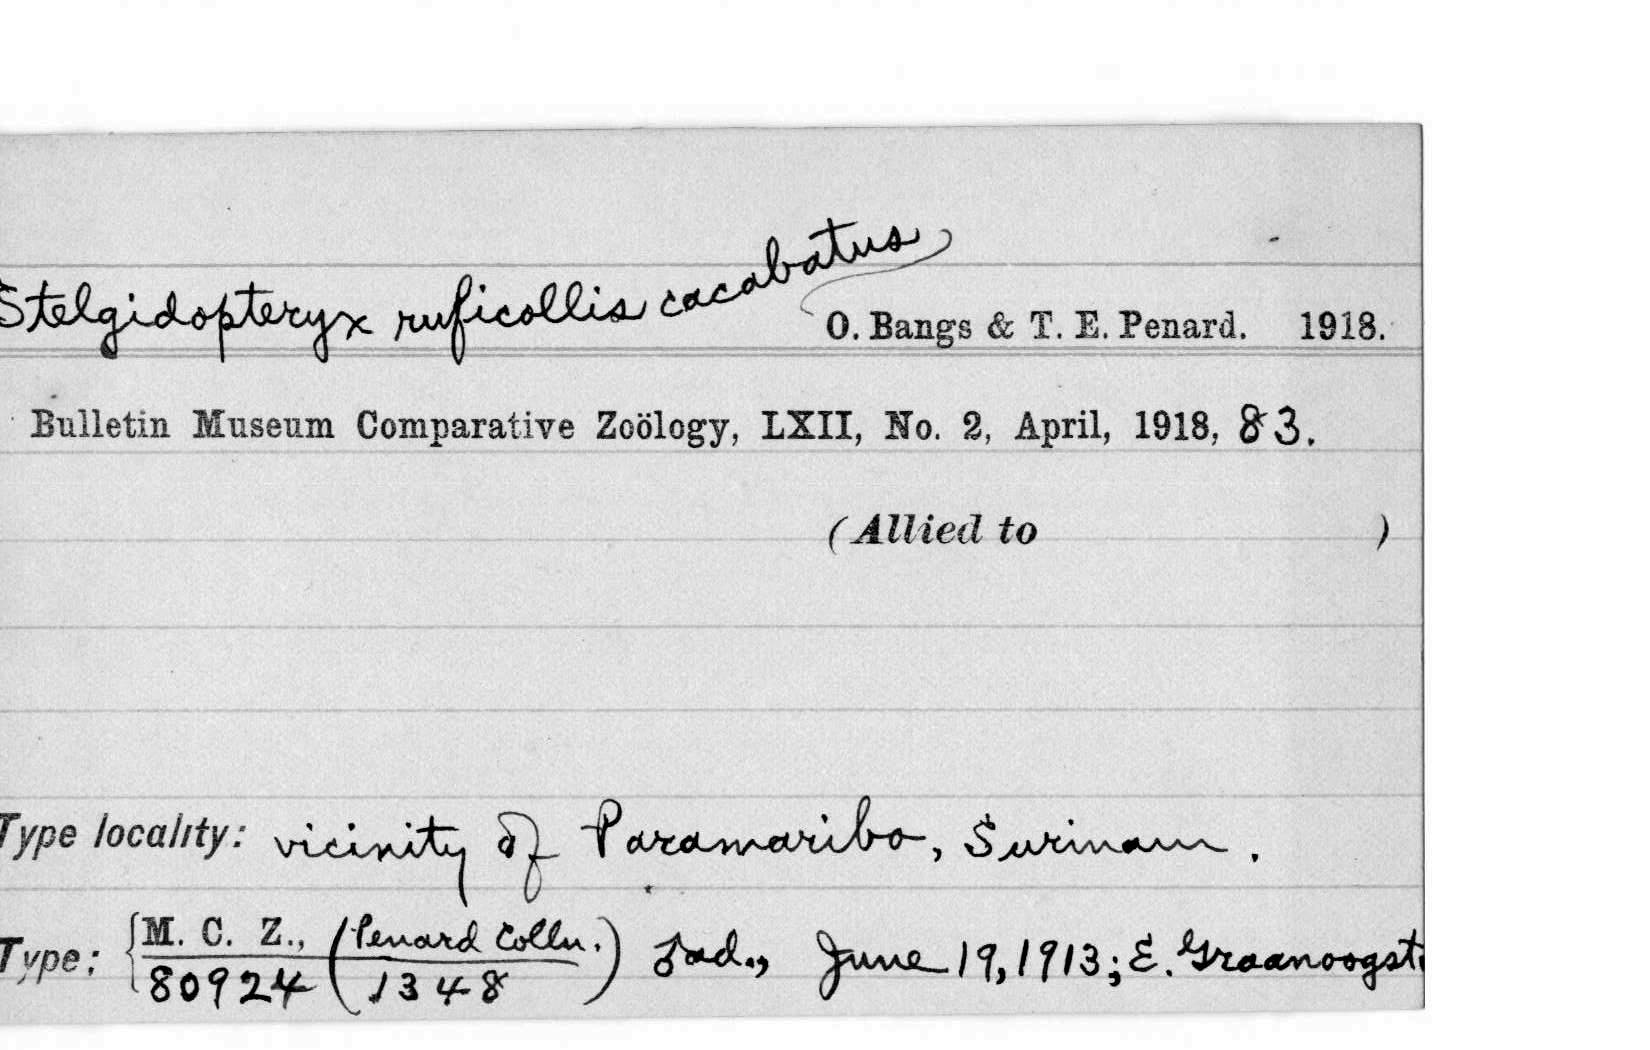 Stelgidopteryx ruficollis cacabatus
O. Bangs & T. E. Penard. 1918.
Bulletin Museum Comparative Zoölogy, LXII, No. 2, April, 1918, 83.
(Allied to )
Type locality: vicinity of Paramaribo, Surinam.
Type: { M. C. Z., (Penard Colln.) ad., June 19, 1913; E. Graanoogst
80924 1348